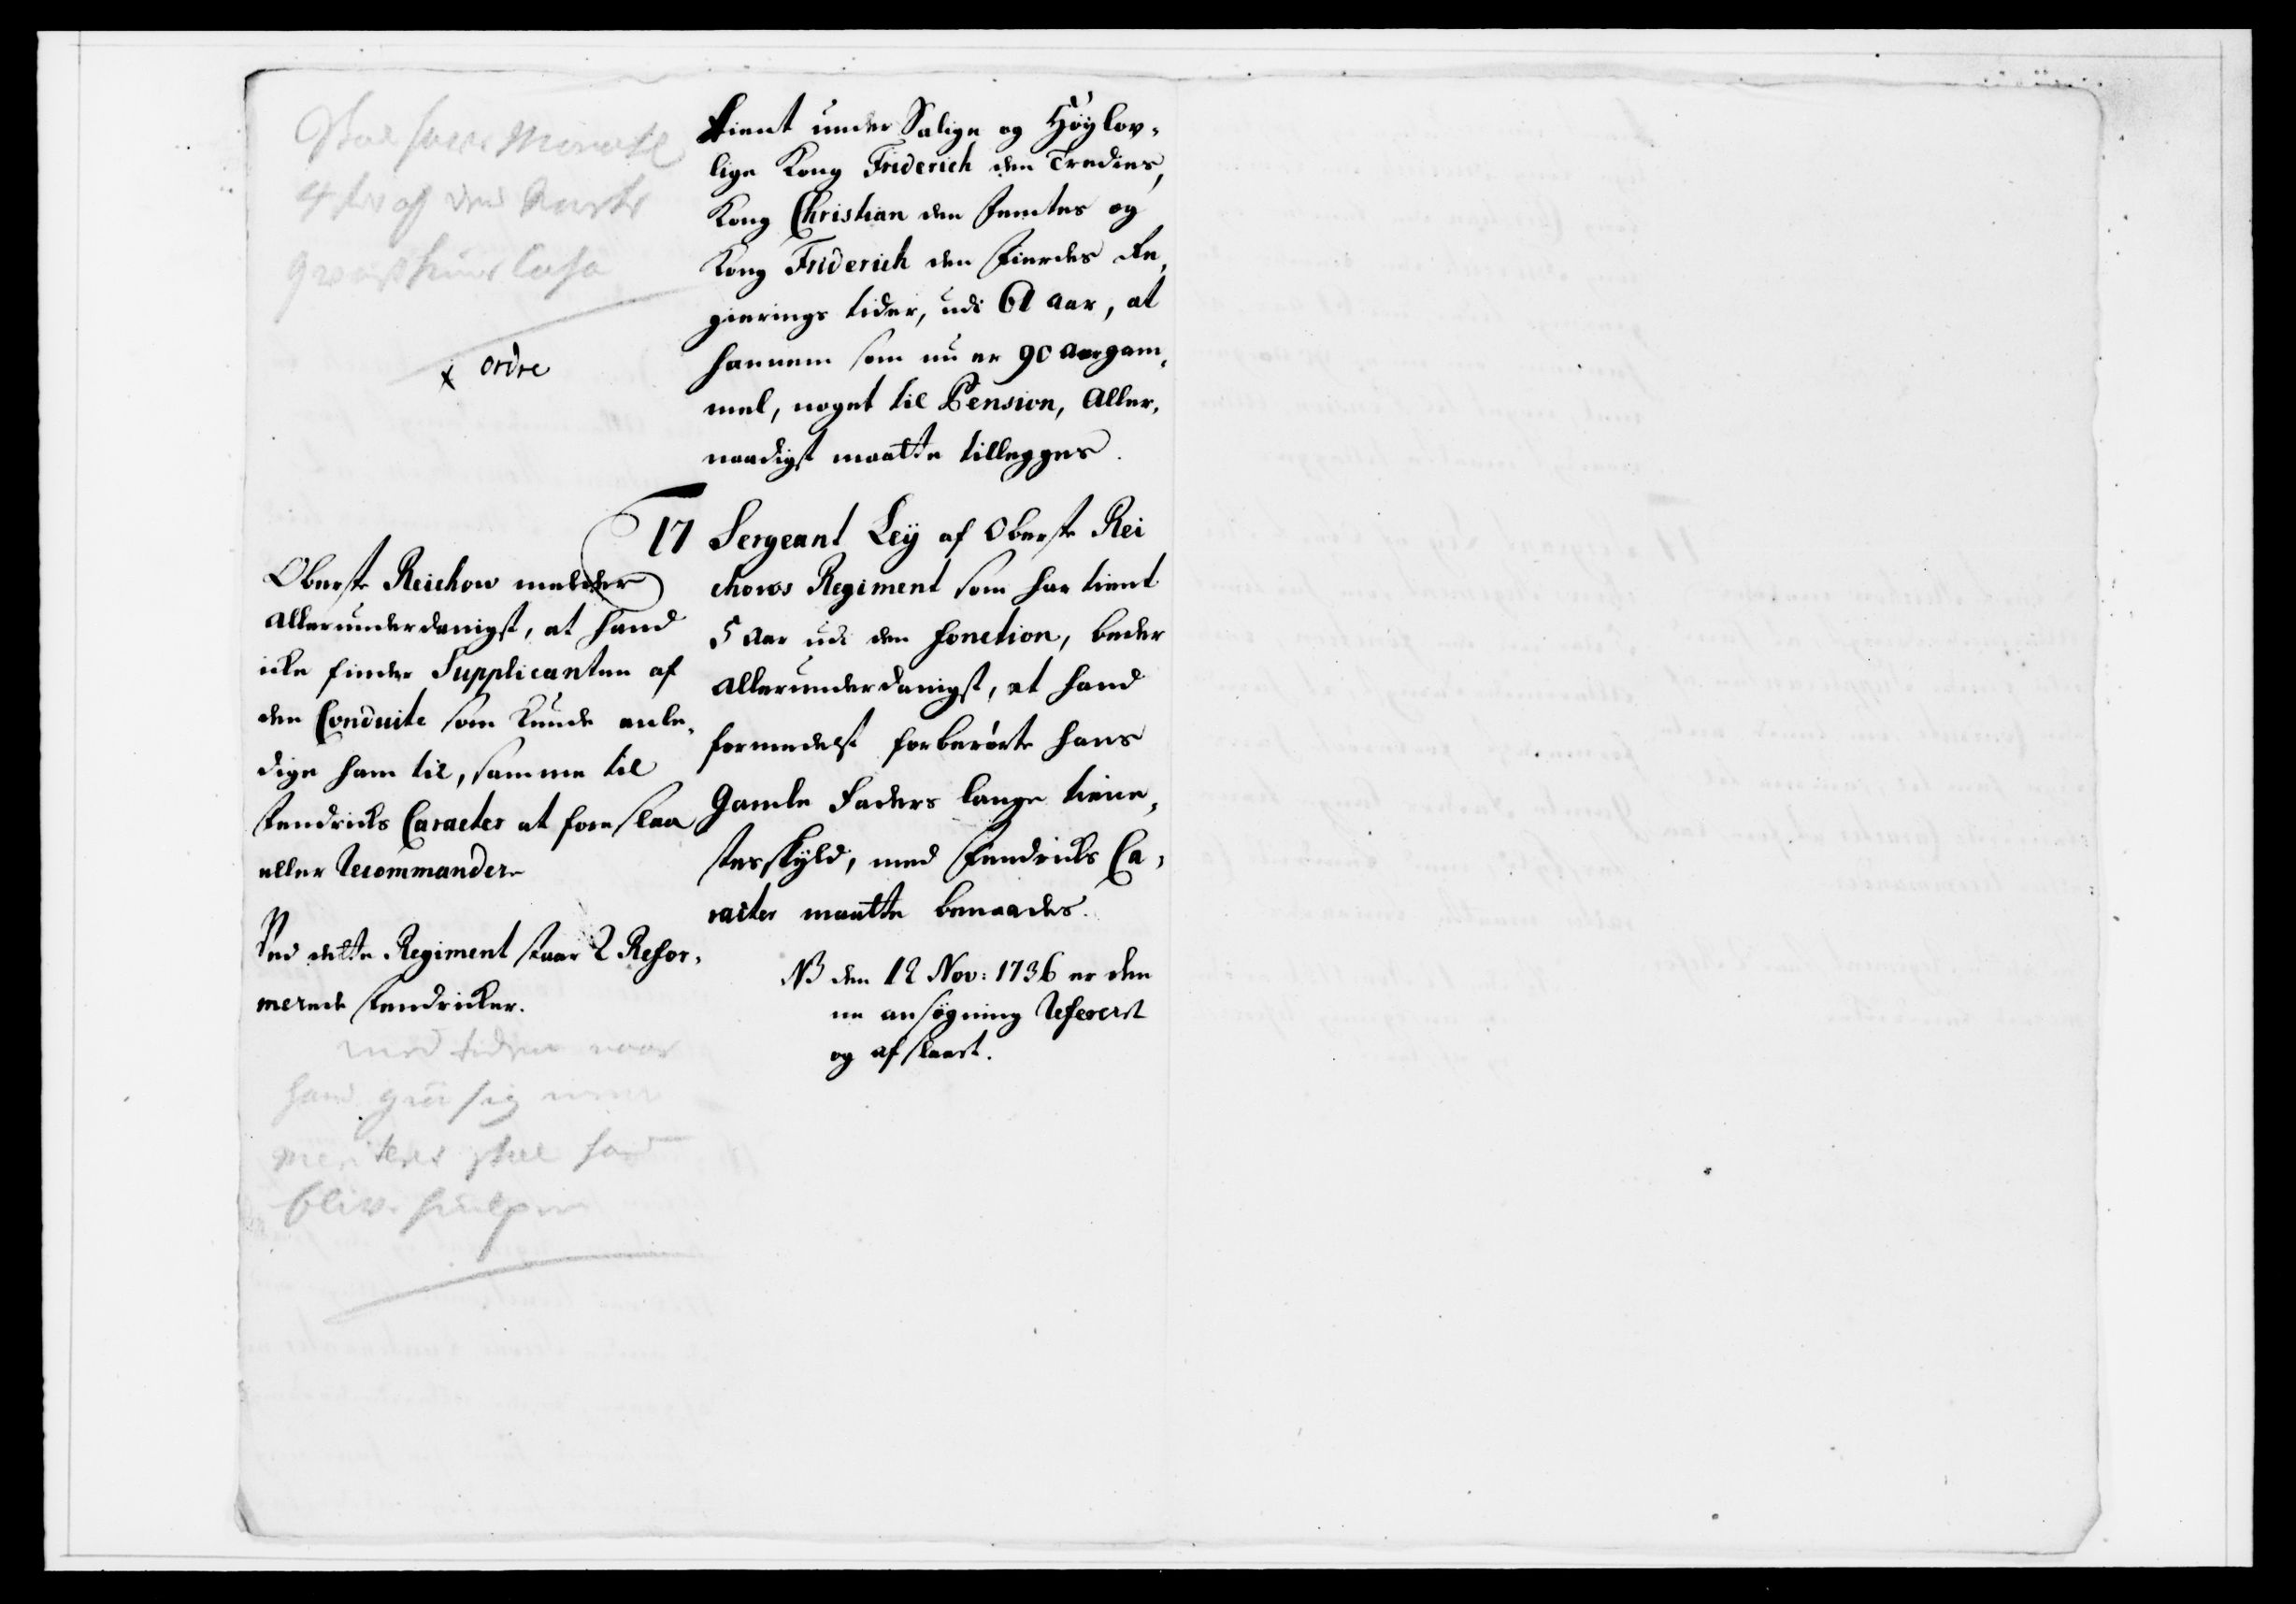 Skal have Monatl
4 af den
Casa
ordre
tient under Salige og Høylov-
lige Kong Friderich den Tredies,
Kong Christian den Femtes og
Kong Friderich den Fierdes Re-
gierings tider, udi 61 aar, at
hannem som nu er 90 aar gam-
mel, noget til Pension, Aller-
naadigst maatte tillegges.
17 Sergeant Leÿ af Oberste Rei
chows Regiment som har tient
5 aar udi den fonction, beder
allerunderdanigst, at hand
formedelst forberørte hans
Gamle Faders lange tiene-
stesskyld, med Fendricks Ca-
racter maatte benaades.
NB den 12 Nov: 1736 er den
ne ansøgning Refererit
og afslaaet.
Oberste Reichow melder
allerunderdanigst, at hand
icke finder Supplicanten af
den Conduite som kunde anle-
dige ham til, samme til
Fendricks Caracter at foreslaa
eller Recommandere
Ved dette Regiment staar 2 Refor-
merede Fendricker.
med tiden naar
hand giör sig meer
meriteret skal hand
blive hiulpen